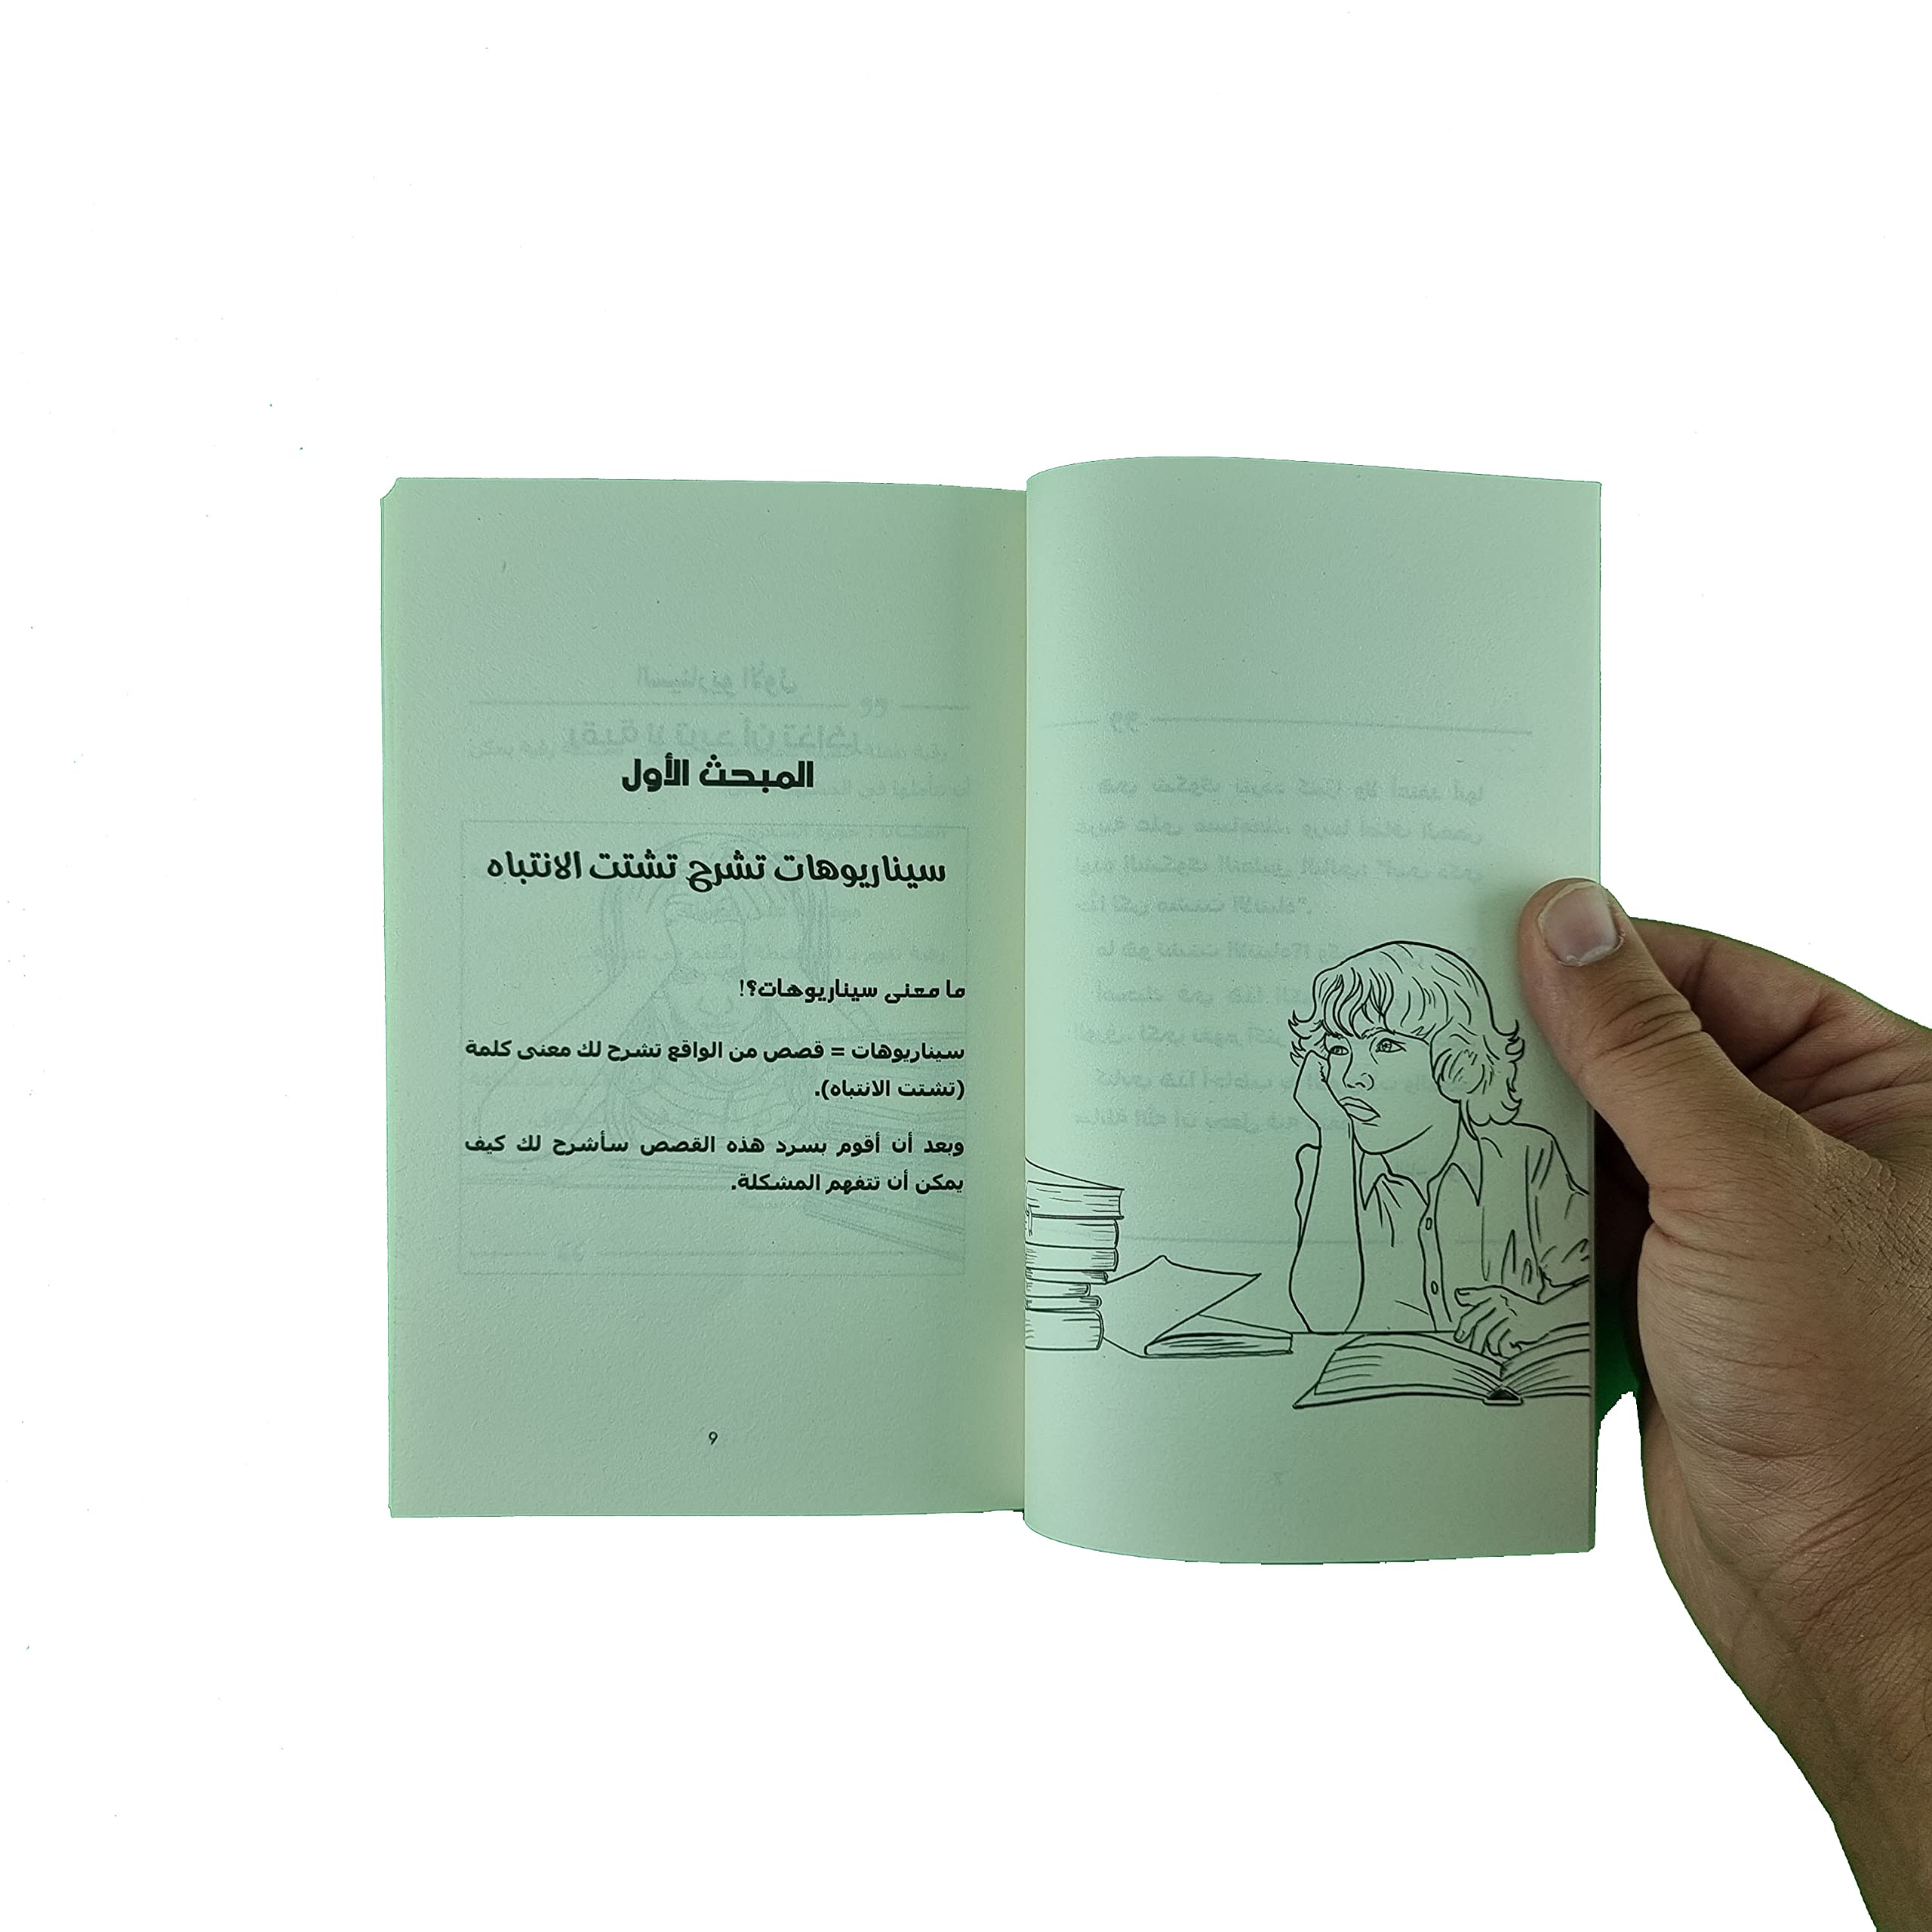 المبحث الأول
سيناريوهات تشرح تشتت الانتباه
ما معنى سيناريوهات؟!
سيناريوهات = قصص من الواقع تشرح لك معنى كلمة
(تشتت الانتباه).
وبعد أن أقوم بسرد هذه القصص سأشرح لك كيف
يمكن أن تتفهم المشكلة.
9